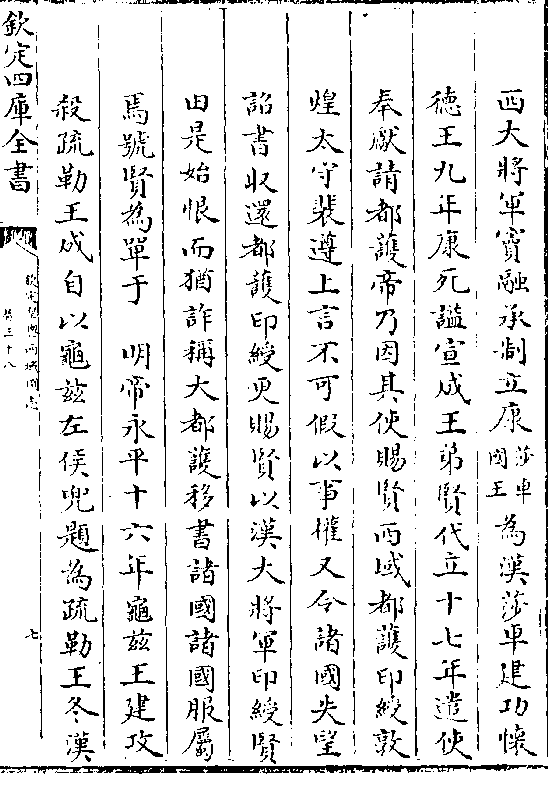 西大將軍竇融承制立康莎車國王為漢莎車建功懷
德王九年康死諡宣成王弟賢代立十七年遣使
奉獻請都護帝乃因其使賜賢西域都護印綬敦
煌太守裴遵上言不可假以事權又令諸國失望
詔書收還都護印綬更賜賢以漢大將軍印綬賢
由是始恨而猶詐稱大都護移書諸國諸國服屬
焉號賢為單于　明帝永平十六年龜茲王建攻
殺疏勒王成自以龜茲左侯兜題為疏勒王冬漢
欽定四庫全書
欽定皇輿西域圖志
卷三十八
七